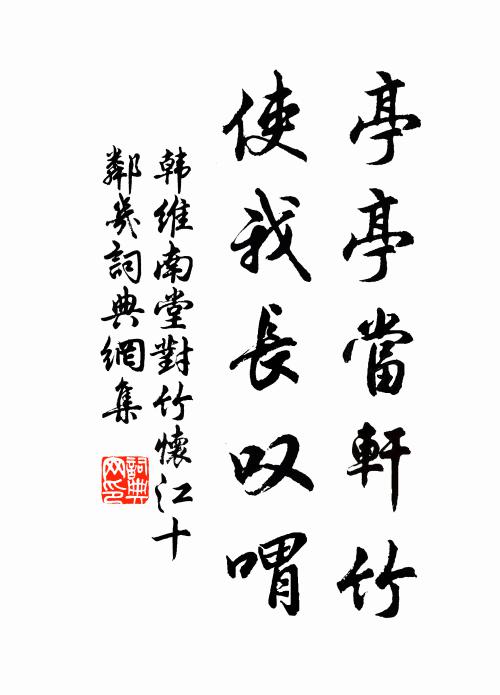 亭亭當軒竹
使我長叹喟
韩維南堂對竹懷江十
鄰幾詞典網集
詞典網印